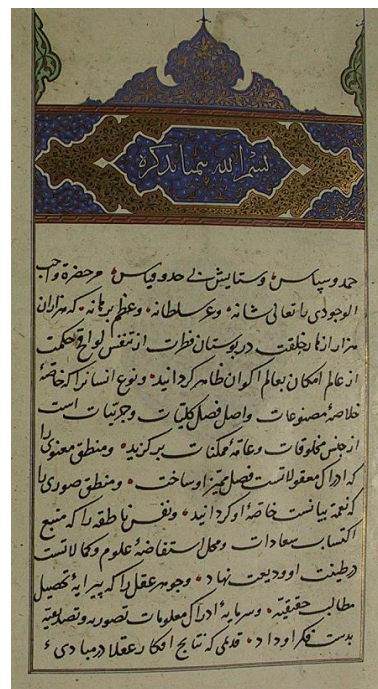 بسم الله تیمنا بذکره
حمد و سپاس و ستایش بی حد و قیاس مر حضرة واجب
الوجودی را تعالی شانه وعز سلطانه وعظم برهانه که هزاران
هزار ازهار خلقت در بوستان فطرت از تنفس لواقح حکمت
از عالم امکان بعالم اکوان ظاهر کردانید ونوع انسانرا که خاصهٔ
خلاصهٔ مصنوعات واصل فصل کلیات وجزئیات است
از جنس مخلوقات وعامهٔ ممکنات برکزید ومنطق معنوی را
که ادراک معقولاتست فصل ممیز او ساخت ومنطق صوری را
که نغمهٔ بیانست خاصهٔ او کردانید ونفس ناطقه را که منبع
اکتساب سعادات ومحل استفاضهٔ علوم وکمالاتست
در طینت او ودیعت نهاد وجوهر عقل را که پیرایهٔ تحصیل
مطالب حقیقیه وسرمایهٔ ادراک معلومات تصوریه وتصدیقیه
بدست فکر او داد قدیمی که نتایج افکار عقلا در مبادی